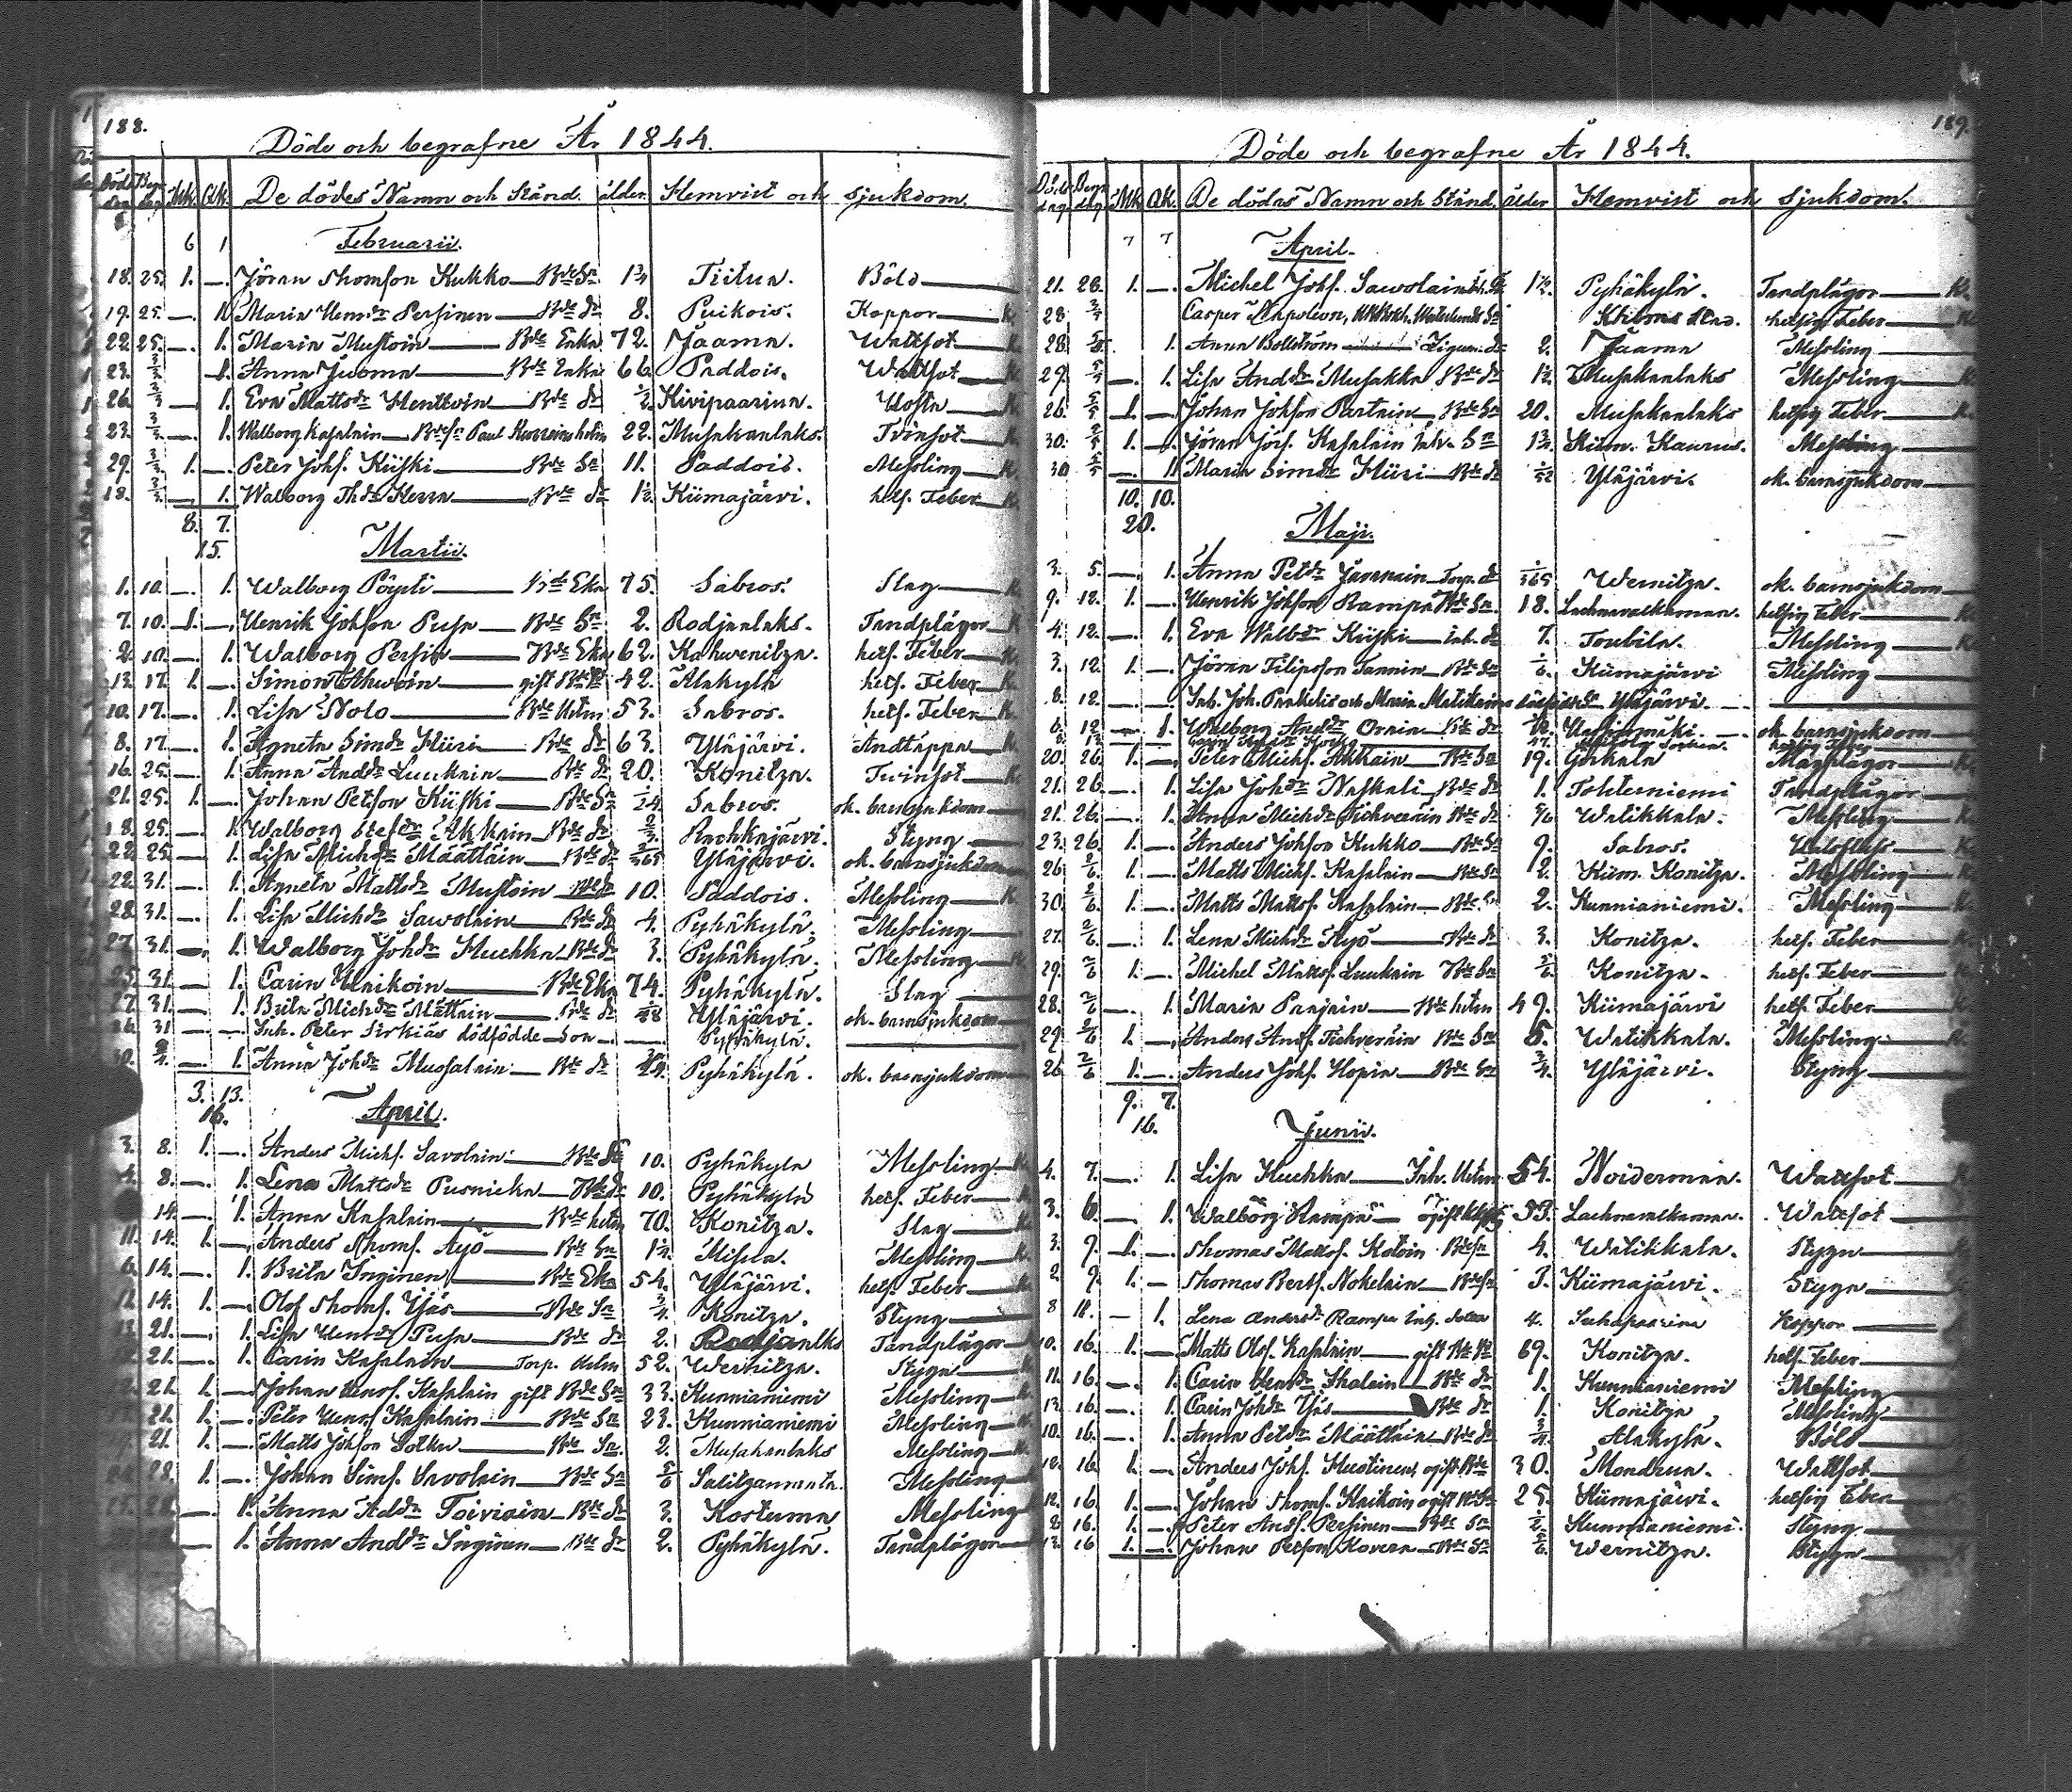 188.
Döde och begrafne År 1844.
Döde dag Begr. dag Mk. Qk. De dödes Namn och Stånd. ålder. Hemvist och sjukdom.
6 1 Februarii.
18. 25. 1. —. Jöran Thomson Kukko — Bde Sn 1 3/4 Tiitua. Böld
19. 25. —. 1. Maria Henrdr Persinen — Bde dr 8. Puikois. Koppor — K.
22. 25. —. 1. Maria Mustoin — Bde Enka 72. Jaama. Wattsot — K.
23. 3/3 1. Anna Juoma — Bde Enka 66. Paddois. Wattsot — K.
26. 3/3 — 1. Eva Mattsdr Hentvin — Bde dr 1/2 Kivipaarina. Hosta — K
23. 3/3 —. 1. Walborg Kasalain — Bdesn Paul helm 22. Musakanlaks. Tvinsot — K
29. 3/3 1. —. Peter Johs. Kiiski — Bde Sn 11. Paddois. Messling — K
18. 3/3 — 1. Walborg Thdr Herra — Bde dr 1 1/2 Kiimajärvi. hets. Feber — K
8. 7.
15. Martii.
1. 10. —. 1. Walborg Pöysti — Bde Eka 75. Sabros. Slag — K
7. 10. 1. —. Henrik Johson Pusa — Bde Sn 2. Rodjanlaks. Tandplågor — K
2. 10. —. 1. Walborg Persin — Bde Eka 62. Kahwenitza. hets. Feber — K
13. 17. 1. —. Simon — gift Bde 42. Alakylä hets. Feber — K
10. 17. —. 1. Lisa Nolo — Bde Hstru 53. Sabros. hets. Feber — K
8. 17. —. 1. Agneta Simdr Hiiri — Bde dr 63. Yläjärvi. Andtäppa — K
16. 25. —. 1. Anna Anddr Luukain — Bde dr 20. Konitza. Tvinsot — K
21. 25. 1. —. Johan Petson Kiiski — Bde Sn 1/24 Sabros. ok. barnsjukdom
18. 25. —. 1. Walborg Stefdr Akkain — Bde dr 2/3 Rachkajärvi. Styng
22. 25. —. 1. Lisa Michdr Määttäin — Bde dr /365 Yläjärvi. ok. barnsjukdom
22. 31. —. 1. Agneta Mattsdr Mustoin Bde dr 10. Paddois. Messling — K
28. 31. —. 1. Lisa Michdr Sawolain — Bde dr 4. Pyhäkylä. Messling
27. 31. —. 1. Walborg Johdr Huchka — Bde dr 3. Pyhäkylä. Messling — K
25. 31. —. 1. Carin Haikoin — Bde Eka 74. Pyhäkylä. Slag
27. 31. —. 1. Brita Michdr Mättäin — Bde dr Yläjärvi. ok. barnsjukdom
26. 31 —. —. Inh. Peter Sirkiäs dödfödde Son —. —. Pyhäkylä.
30. —. 1. Anna Johdr Mussalain — Bde dr Pyhäkylä. ok. barnsjukdom
3. 13.
16. April.
3. 8. 1. —. Anders Michs. Savolain — Bde Sn 10. Pyhäkylä Messling — K
4. 8. —. 1. Lena Mattsdr Pusnieka — Bde dr 10. Pyhäkylä hets. Feber — K
14. —. 1. Anna Kasalain — Bde hstru 70. Konitza. Slag — K
11. 14. 1. —. Anders Thoms. Äyö — Bde Sn 1 1/4. Missla. Messling — K
6. 14. —. 1. Brita Inginen — Bde Eka 54. Yläjärvi. hets. Feber — K
11. 14. 1. —. Olof Thoms. Yjäs — Bde Sn 3/4. Konitza. Styng
21. —. 1. Lisa Henrdr Pusa — Bde dr 2. Rodjanlks Tandplågor
21. —. 1. Carin Kasalain — Torp. Hstru 52. Wernitza. Stygn
21. 1. —. Johan Henrs. Kasalain gift Bde Sn 33. Kunnianiemi Messling
21. 1. —. Peter Henrs. Kasalain — Bde Sn 23. Kunnianiemi Messling
21. 1. —. Matts Johson Sotka — Bde Sn. 2. Musakanlaks Messling
28. 1. —. Johan Sims. Savolain — Bde Sn 5/6 Salitzanranta. Messling
28. —. 1. Anna Addr Toiviain — Bde dr 3. Kostuma Messling
1. Anna Anddr Inginen — Bde dr 2. Pyhäkylä. Tandplågor
189.
Döde och begrafne År 1844.
Döde dag Begr. dag Mk. Qk. De dödas Namn och Stånd. Ålder Hemvist och Sjukdom.
7 7 April.
21. 28. 1. —. Michel Johs. Sawolain 1 1/2. Pyhäkylä. Tandplågor — K.
28 Casper Napoleon, Sn hetsig Feber — K
28 1. Anna Bollström — Zigen. dr 2. Jaama Messling
29. 5/5 —. 1. Lisa Anddr Musakka Bde dr 1 1/2. Musakanlaks Messling — K.
26. 5/5 1. —. Johan Johson Partain — Bde Sn 20. Musakanlaks hetsig Feber — K.
30. 5/5 1. —. Jöran Jörs. Kasalain Inh. Sn 1 3/4. Kiim. Kaurus. Messling
30 5/5 —. 1. Maria Simdr Hiiri — Bde dr 1/52 Yläjärvi. ok. barnsjukdom
10. 10.
20. Maji.
3. 5. —. 1. Anna Petdr Javanain — Torp. dr /365 Wernitza. ok. barnsjukdom
9. 12. 1. —. Henrik Johson Rampa Bde Sn. 18. Lachnavalkama. hetsig Feber — K
4. 12. —. 1. Eva Walbdr Kiiski — Inh. dr 7. Toubila. Messling — K
3. 12. 1. —. Jöran Filipsson Tannin — Bde Sn 1/6. Kiimajärvi Messling
8. 12. — Inh. Joh. Pankelis och Maria dödfödde Sn Yläjärvi. —
6. 12. — 1. Walborg Anddr Orain — Bde dr ok. barnsjukdom
20. 26. 1. —. Peter Michs. Akkain — Bde Sn 19. Gorkala Magplågor — K
21. 26. —. 1. Lisa Johdr Naskali — Bde dr 1. Tohterniemi Tandplågor
21. 26. —. 1. Anna Michdr Tichveräin Bde dr 5/6 Watikkala. Messling — K
23. 26. 1. —. Anders Johson Kukko — Bde Sn 9. Sabros. — K
26 2/6 1. —. Matts Michs. Kasalain — Bde Sn 2. Kiim. Konitza. Messling — K
30. 2/6 1. —. Matts Mattss. Kasalain — Bde Sn 2. Kunnianiemi. Messling
27. 2/6 —. 1. Lena Michdr Äyö — Bde dr 3. Konitza. hets. Feber
29. 2/6 1. —. Michel Mattss. Luukain Bde Sn Konitza. hets. Feber
28. 2/6 —. 1. Maria Panjain — Bde hstru 49. Kiimajärvi hets. Feber
29. 2/6 1. —. Anders Ands. Tichveräin Bde Sn 5. Watikkala. Messling
26. 2/6 1. —. Anders Johs. Hopia — Bde Sn 3/4. Yläjärvi. Styng
9. 7.
16. Junii.
4. 7. —. 1. Lisa Huchka — Inh. Hstru 54. Noiderman. Wattsot
3. 6. —. 1. Walborg Rampa — ogift 59. Lachnavalkama. Wattsot
3. 9. 1. —. Thomas Mattss. Kotoin Bdesn 4. Watikkala. Stygn
2. 9. 1. — Thomas Berts. Nokelain — Bdesn 3. Kiimajärvi. Stygn
8 11. — 1. Lena Andersdr Rampa Inh. Dotter 4. Suhapaarina Koppor
10. 16. 1. —. Matts Olofs. Kasalain — gift Bde 69. Konitza. hets. Feber
11. 16. —. 1. Carin Henrdr Ihalain — Bde dr 1. Kunnianiemi Messling
12. 16. —. 1. Carin Johdr Yjäs — Bde dr 1. Konitza Messling
10. 16. —. 1. Anna Petdr Määttäin Bde dr 3/4. Alakylä. Böld
12. 16 1. —. Anders Johs. Hustinen, ogift Bde 30. Mondrua. Wattsot
12. 16. 1. —. Johan Thoms. Haikoin ogift Bde Sn 25. Kiimajärvi. hetsig Feber
8 16. 1. —. Peter Ands. Persinen — Bde Sn 1/2. Kunnianiemi. Styng
12. 16 1. —. Johan Petson Kovera — Bde Sn 5/6. Wernitza. Stygn